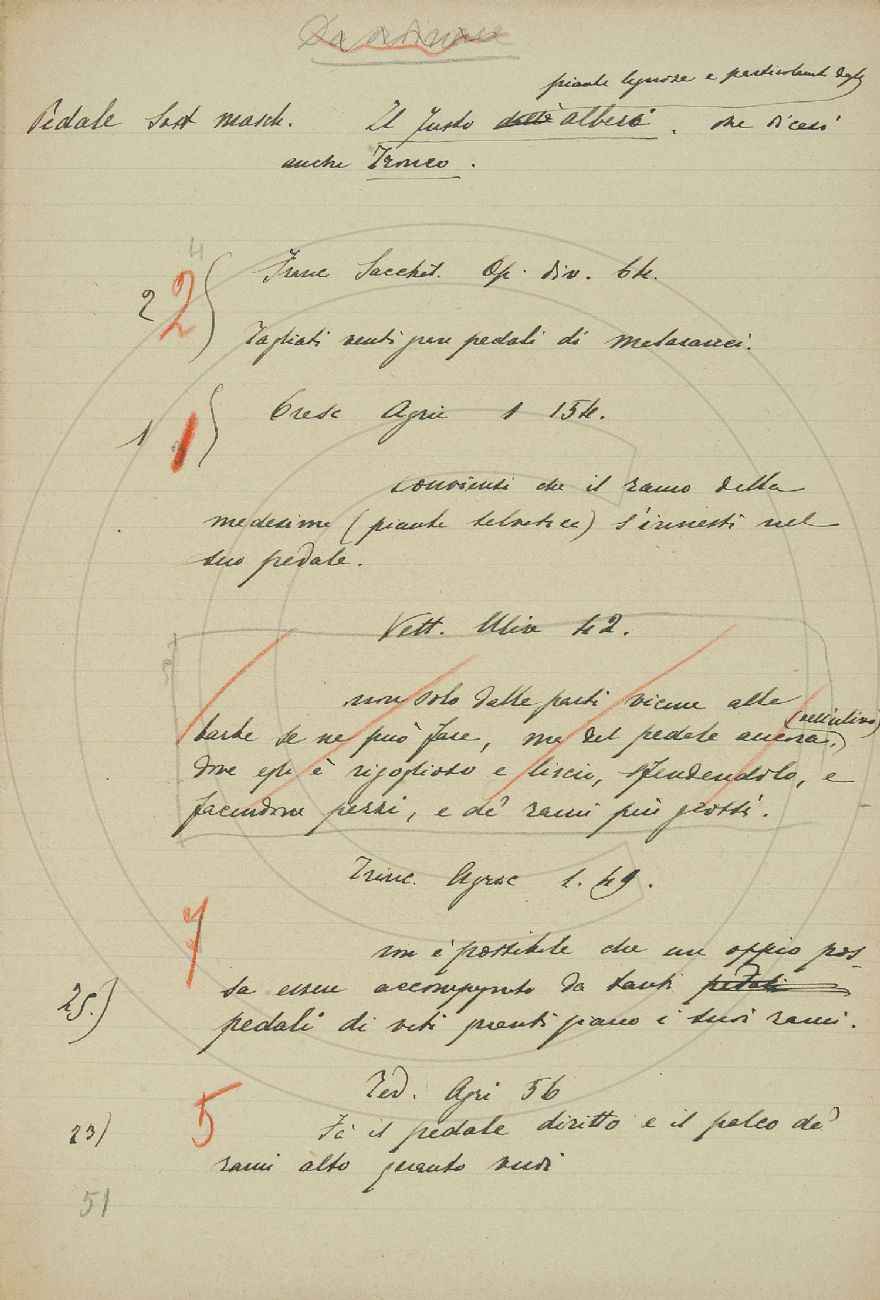 Da ordinare
piante legnose e particolarmt degli
Pedale Sost masch. Il fusto delle alberi . che dicesi
anche Tronco .
4
2 2) Franc Sacchet. Op. div. 64.
Tagliati venti gran pedali di melaranci.
1 1) Cresc Agric 1 154.
conviensi che il ramo della
medesima (piante selvatica) s'innesti nel
suo pedale.
Vett. Uliv 42.
non solo dalle parti vicine alle
barbe se ne può fare, ma del pedale ancora (dell'ulivo)
dove egli è rigoglioso e liscio, fendendolo, e
facendone pezzi, e de' rami più grossi.
Trinc. Agric 1. 49.
7 non è possibile che un oppio pos-
25.) sa essere accompagnato da tanti pedali
pedali di viti quanti siano i suoi rami.
Ted. Agri 56
23) 5 Fà il pedale diritto e il palco de'
rami alto quanto vuoi
51